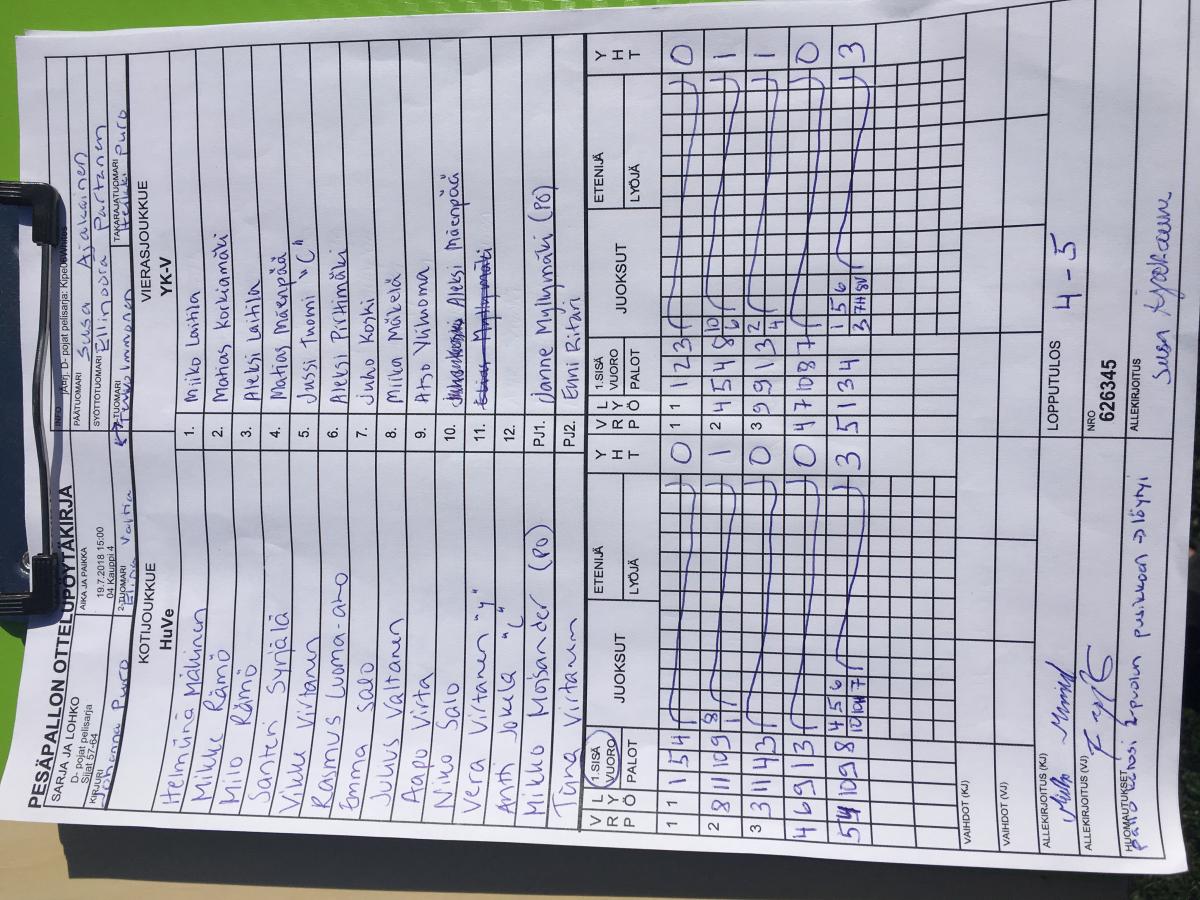 PESÄPALLON OTTELUPÖYTÄKIRJA
SARJA JA LOHKO
D- pojat pelisarja
Sijat 57-64
AIKA JA PAIKKA
19.7.2018 15:00
04 Kauppi 4
INFO
(A#rj. D- pojat pelisarja: Kipedewhites
PÄÄTUOMARI
Susa Ajakainen
SYÖTTÖTUOMARI
Ellinoora Partanen
KIRJURI
Johanna Puro
2-TUOMARI
Elina Valtia
3-TUOMARI
TAKARAJATUOMARI
Heikki Puro
KOTIJOUKKUE
HuVe
VIERASJOUKKUE
YK-V
Helmiina Mäkinen
1. Miiko Laitila
Miikke Rämö
2. Matias Korkiamäki
Milo Rämö
3. Aleksi Laitila
Santeri Syrjälä
4. Matias Mäenpää
Viljke Virtanen
5. Jussi Tuomi "C"
Rasmus Luoma-aho
6. Aleksi Pirttimäki
Emma Salo
7. Juho Koski
Julius Valtanen
8. Miika Mäkelä
Aapo Virta
9. Atso Ylihuoma
Niko Salo
10. Aleksi Mäenpää
Vera Virtanen "y"
11.
Antti Jokela "C"
12.
Mikko Mojsander (PO)
PJ1. Janne Myllymäki (PO)
Tiina Virtanen
PJ2. Enni Ritari
V R P L Y Ö 1.SISÄ VUORO PALOT JUOKSUT ETENIJÄ LYÖJÄ Y H T
V R P L Y Ö 1.SISÄ VUORO PALOT JUOKSUT ETENIJÄ LYÖJÄ Y H T
1 1 1 5 4 0
1 1 1 2 3 0
2 8 11 10 9 8 1 1
2 4 5 4 8 10 6 1
3 3 11 4 3 0
3 9 9 1 3 2 4 1
4 6 9 1 3 0
4 7 10 8 7 0
5 4 10 9 8 4 5 6 3
3 5 1 3 4 1 5 6 3
VAIHDOT (KJ)
VAIHDOT (VJ)
ALLEKIRJOITUS (KJ)
LOPPUTULOS
4-5
ALLEKIRJOITUS (VJ)
NRO
626345
HUOMAUTUKSET
pallo katosi 2-puolun pusikkoon → löytyi
ALLEKIRJOITUS
Susa Ajakainen